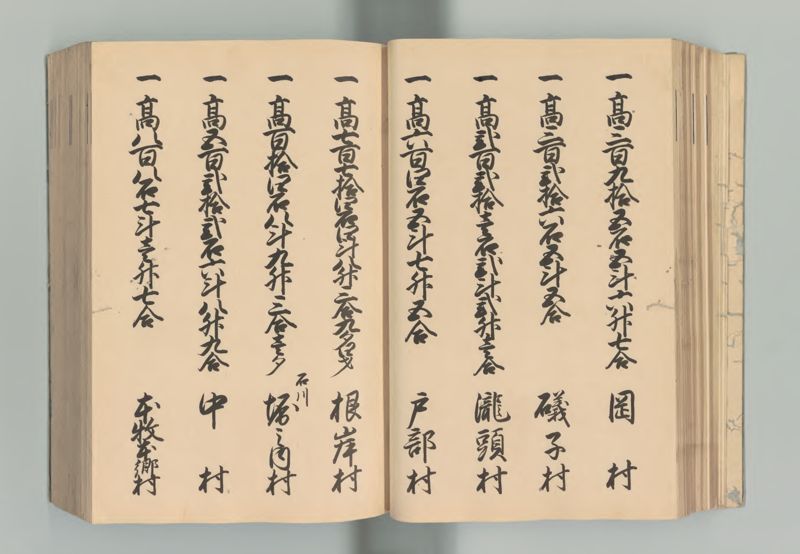 一高三百九拾五石五斗六升七合 岡村
一高三百弐拾六石五斗五合 磯子村
一高弐百弐拾壱石弐斗弐升三合 瀧頭村
一高六百四石五斗七升五合 戸部村
一高七百七拾四石四斗八升三合九勺 根岸村
一高百拾四石八斗九升三合壱夕 石川 堀之内村
一高五百弐拾弐石六斗八升九合 中村
一高八百八石七斗壱升七合 本牧本郷村